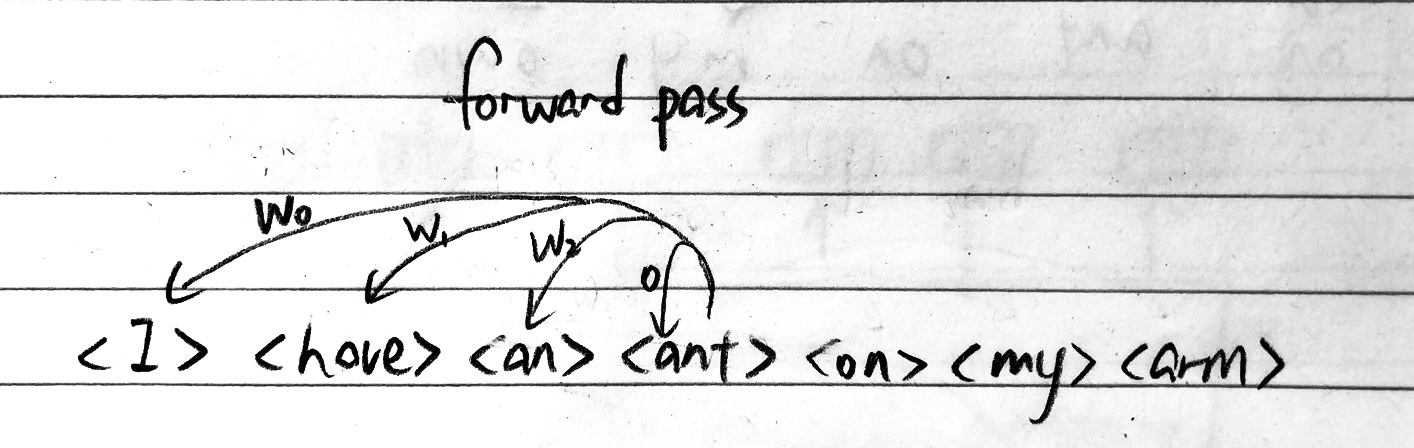 forward pass
W0 W1 W2 0
<I> <have> <an> <ant> <on> <my> <arm>